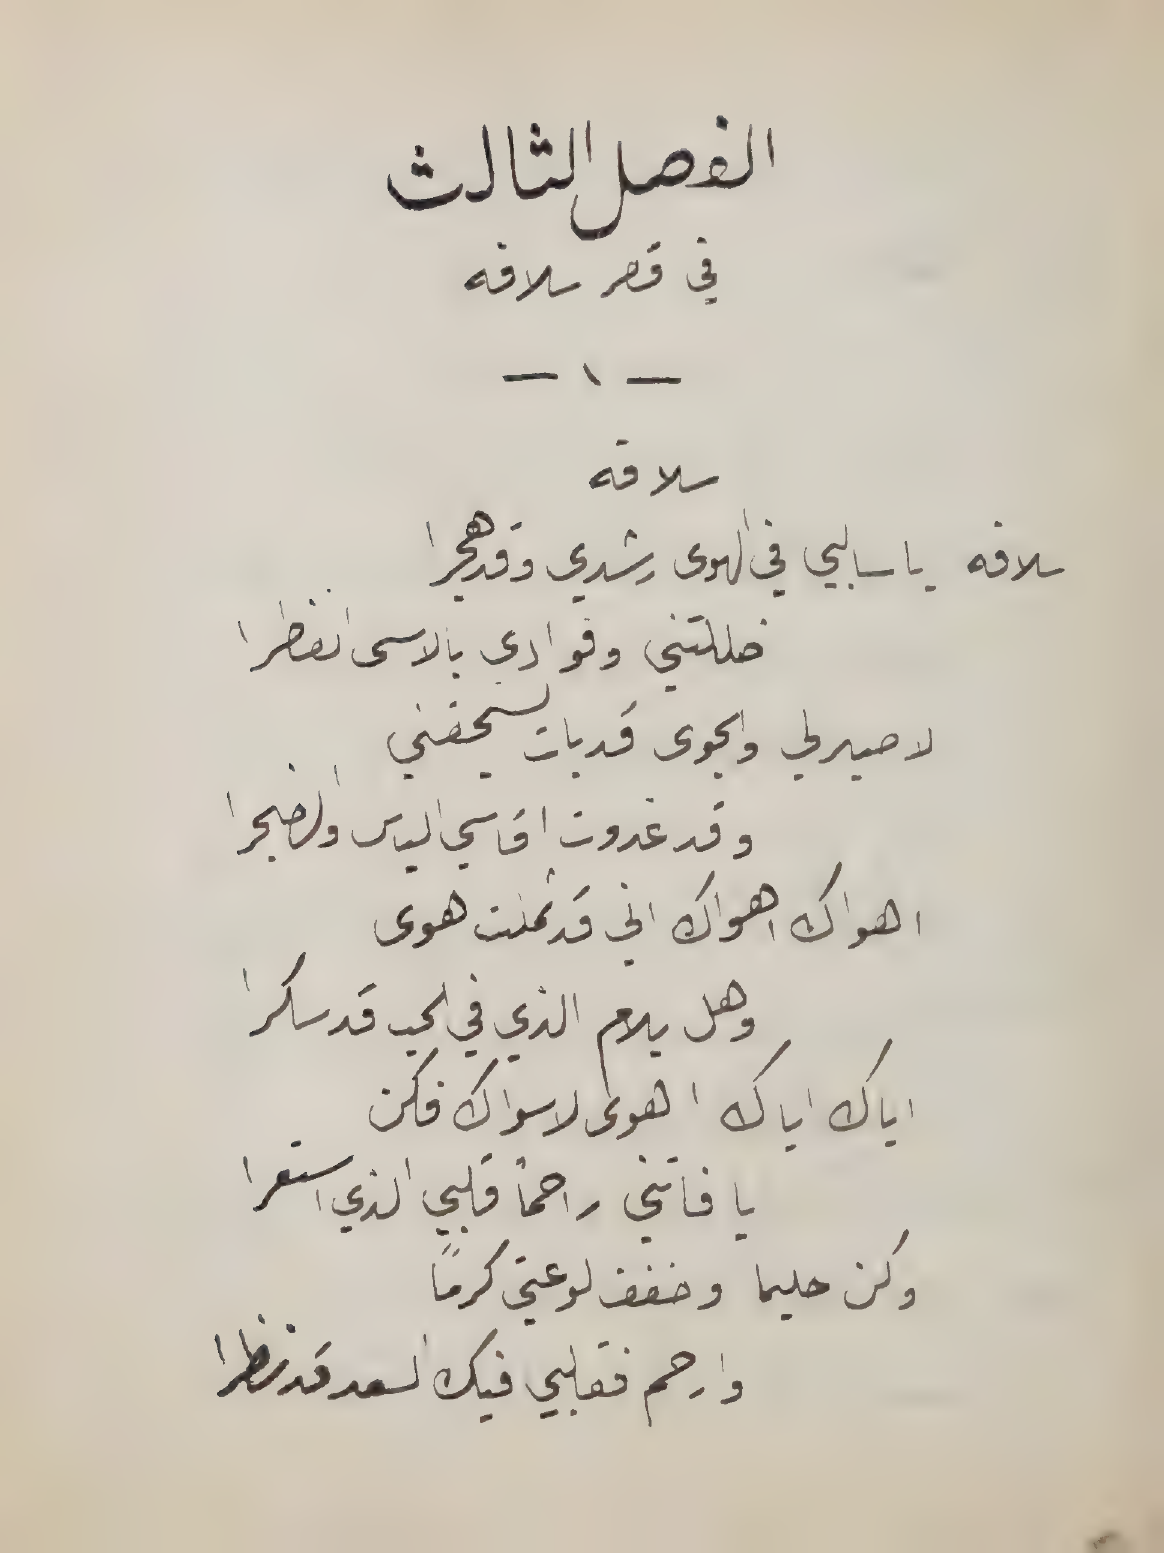 الفصل الثالث
في قصر سلافه
— ١ —
سلافه
سلافه ياسالبي في الهوى رشدي وقد هجرا
ضللتني وفوادي بالاسى انفطرا
لا صبر لي والجوى قد بات يسحقني
وقد غدوت اقاسي الياس والضجرا
اهواك اهواك اني قد ثملت هوى
وهل يلام الذي في الحب قد سكرا
اياك اياك اهوى لا سواك فكن
يا فاتني راحمًا قلبي الذي استعرا
وكن حليما وخفف لوعتي كرمًا
وارحم فقلبي فيك السعد قد نظرا